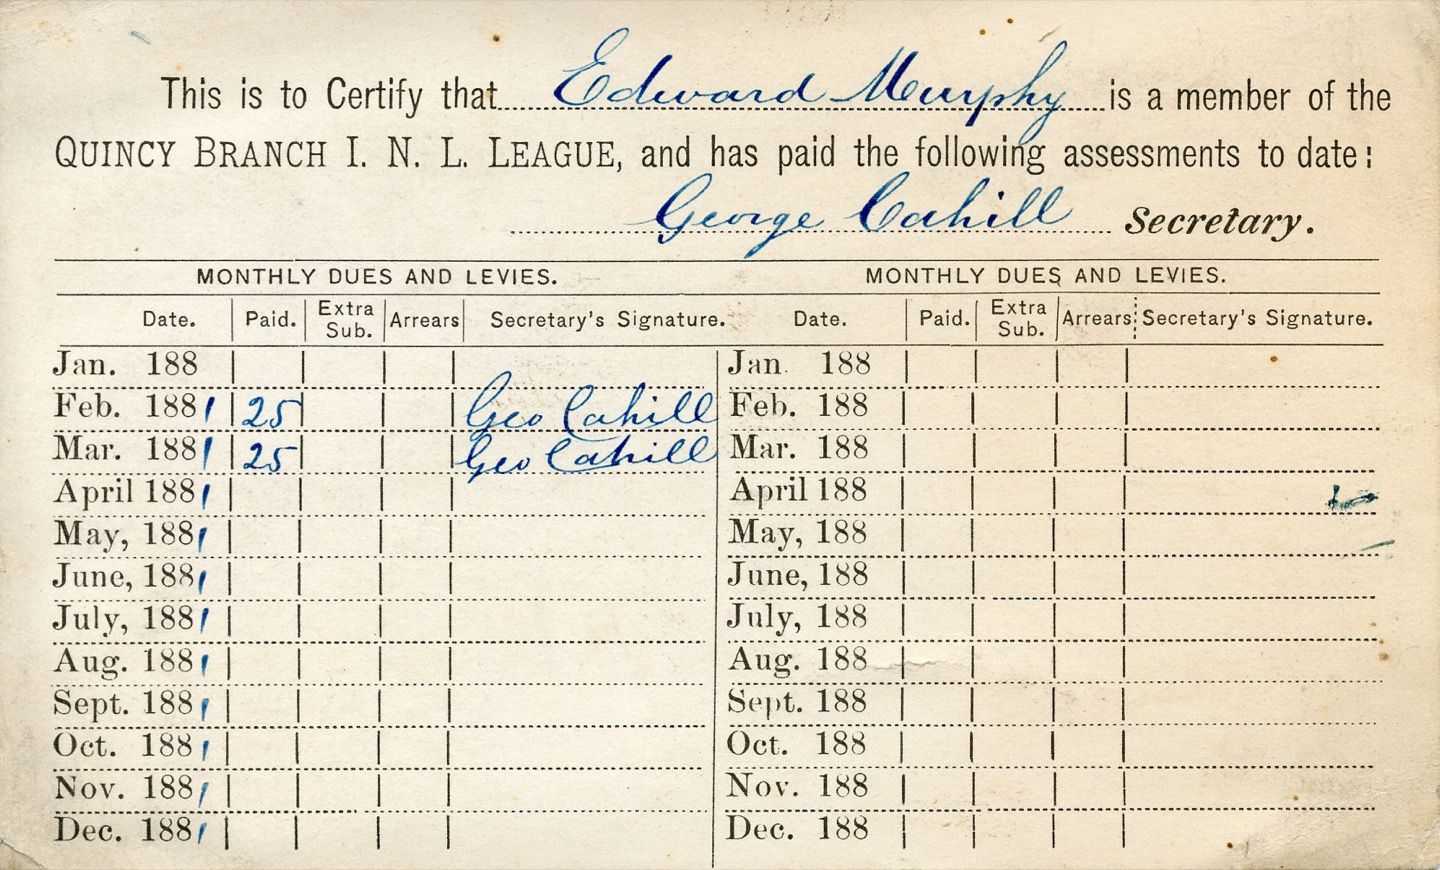 This is to Certify that Edward Murphy is a member of the
QUINCY BRANCH I. N. L. LEAGUE, and has paid the following assessments to date:
George Cahill Secretary.
MONTHLY DUES AND LEVIES. MONTHLY DUES AND LEVIES.
Date. Paid. Extra Sub. Arrears Secretary's Signature. Date. Paid. Extra Sub. Arrears Secretary's Signature.
Jan. 188 Jan 188
Feb. 1881 25 Geo Cahill Feb. 188
Mar. 1881 25 Geo Cahill Mar. 188
April 1881 April 188
May, 1881 May, 188
June, 1881 June, 188
July, 1881 July, 188
Aug. 1881 Aug. 188
Sept. 1881 Sept. 188
Oct. 1881 Oct. 188
Nov. 1881 Nov. 188
Dec. 1881 Dec. 188